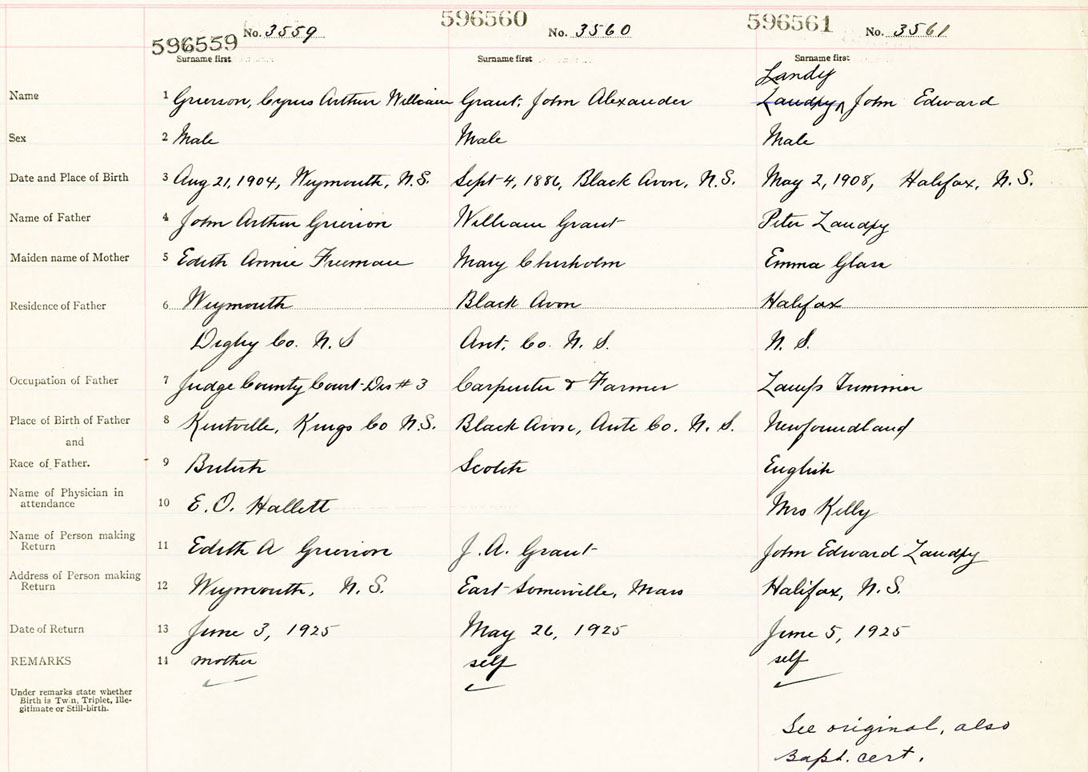 596559 No. 3559 596560 No. 3560 596561 No. 3561
Surname first Surname first Surname first
Landy
Name 1 Grierson, Cyrus Arthur William Grant, John Alexander Laudpy, John Edward
Sex 2 Male Male Male
Date and Place of Birth 3 Aug 21, 1904, Weymouth, N.S. Sept 4, 1886, Black Avon, N.S. May 2, 1908, Halifax, N.S.
Name of Father 4 John Arthur Grierson William Grant Peter Laudpy
Maiden name of Mother 5 Edith Annie Freeman Mary Chisholm Emma Glass
Residence of Father 6 Weymouth Black Avon Halifax
Digby Co. N.S Ant. Co. N.S. N.S.
Occupation of Father 7 Judge County Court Dis # 3 Carpenter & Farmer Lamp Trimmer
Place of Birth of Father 8 Kentville, Kings Co N.S. Black Avon, Ante Co. N.S. Newfoundland
and
Race of Father. 9 British Scotch English
Name of Physician in
attendance 10 E.O. Hallett Mrs Kelly
Name of Person making
Return 11 Edith A Grierson J.A. Grant John Edward Laudpy
Address of Person making
Return 12 Weymouth, N.S. East Somerville, Mass Halifax, N.S.
Date of Return 13 June 3, 1925 May 26, 1925 June 5, 1925
REMARKS 14 mother self self
Under remarks state whether
Birth is Twin, Triplet, Ille-
gitimate or Still-birth.
See original, also
Bapt. cert.